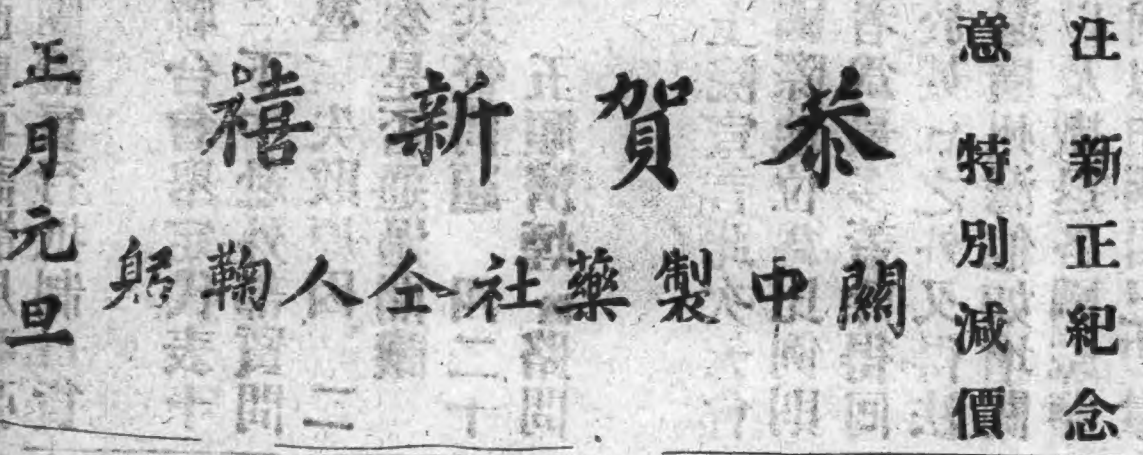 注意
新正紀念
特別減價
恭賀新禧
關中製藥社仝人鞠躬
正月元旦